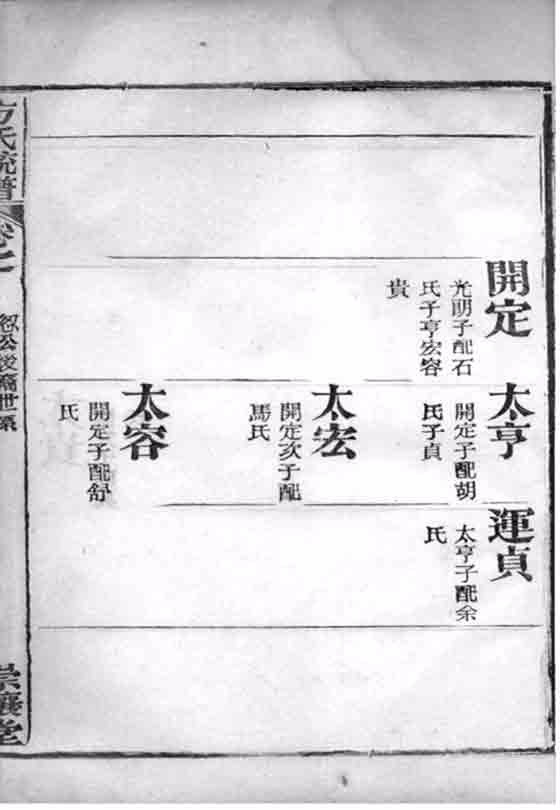 開定
光明子配石
氏子亨宏容
貴
太亨
開定子配胡
氏子貞
太宏
開定次子配
馬氏
太容
開定子配舒
氏
運貞
太亨子配余
氏
方氏統譜
卷
公後裔世系
崇讓堂